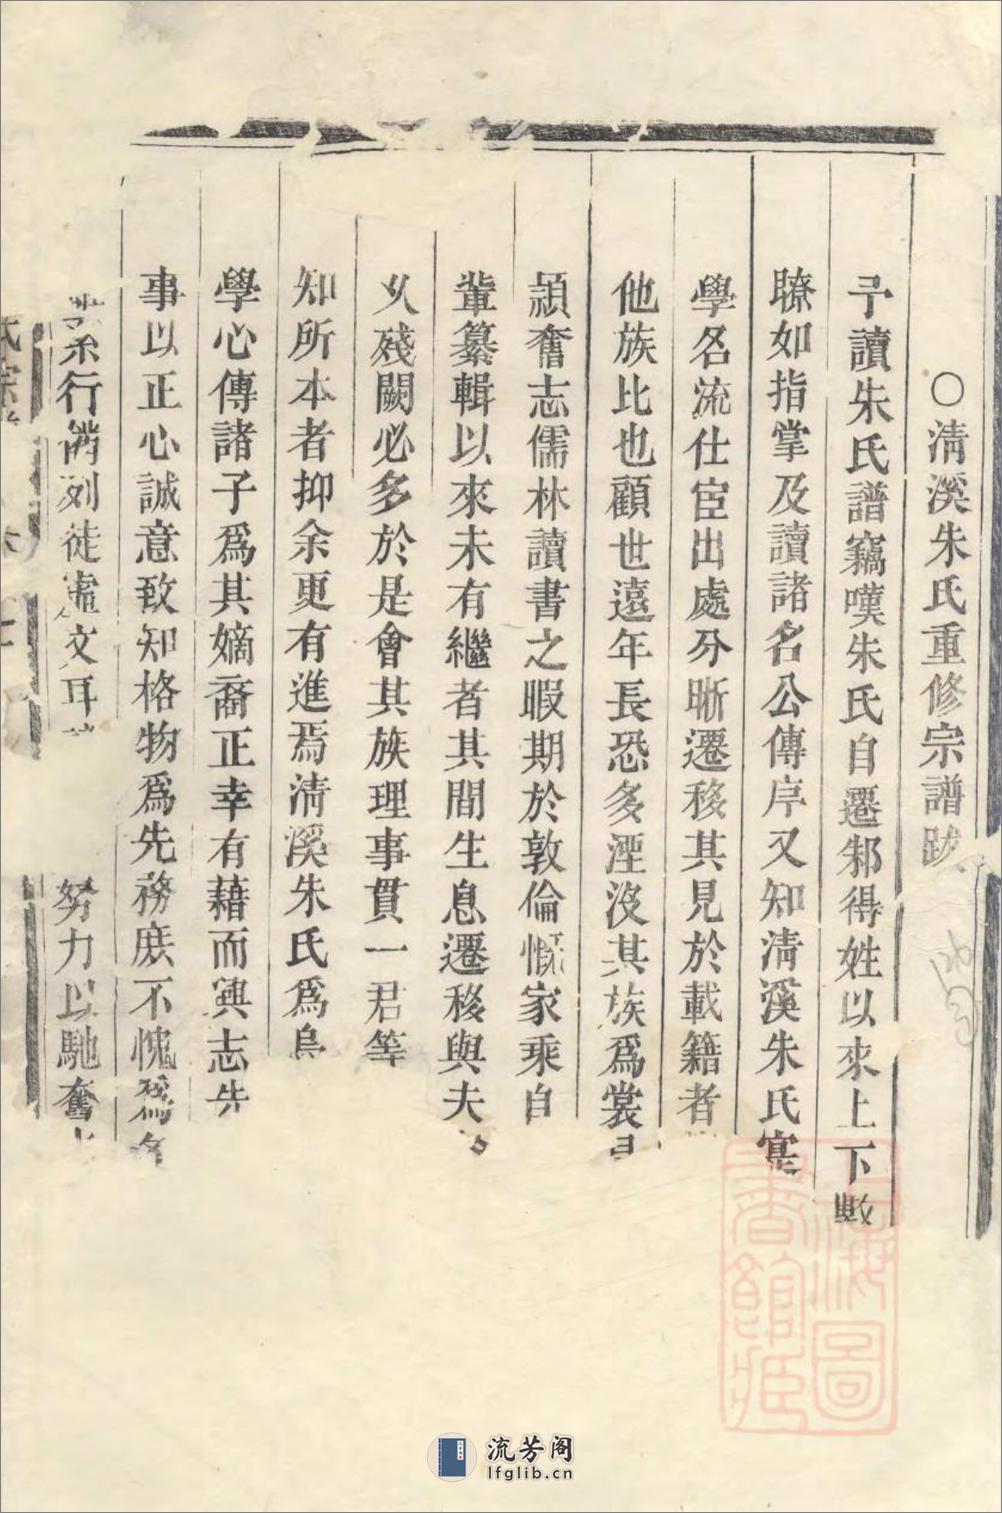 〇清溪朱氏重修宗譜跋
予讀朱氏譜竊嘆朱氏自遷邾得姓以來上下數
瞭如指掌及讀諸名公傳序又知清溪朱氏宦
學名流仕宦出處分晰遷移其見於載籍者
他族比也顧世遠年長恐多湮沒其族爲裳
頴奮志儒林讀書之暇期於敦倫慨家乘自
輩纂輯以來未有繼者其間生息遷移與夫
乆殘闕必多於是會其族理事貫一君等
知所本者抑余更有進焉清溪朱氏爲
學心傳諸子爲其嫡裔正幸有藉而興志先
事以正心誠意致知格物爲先務庶不愧爲
業行潸列徒虛文耳 努力以馳奮
氏宗
上海圖書館藏
流芳阁
lfglib.cn